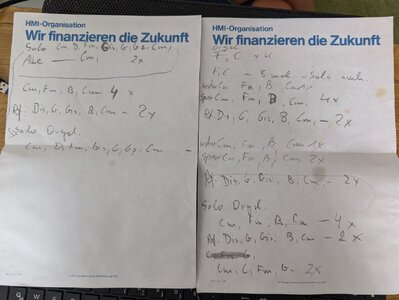 HMI-Organisation
Wir finanzieren die Zukunft
Solo Cm, D, Fm, Gis, G, G7, Cm,
Alle — Cm, 2x
Cm, Fm, B, Cm 4x
Rf. Dis, G, Gis, B, Cm – 2x
Solo Orgel.
Cm, D, Fm, Gis, G, G7, Cm. –
HMI-Organisation
Wir finanzieren die Zukunft
F, C × 4
F, C – 8 mal – Solo
Cm Fm, B, Cm 1x
Cm Fm, B, Cm, 4x
Rf. Dis, G, Gis, B, Cm, – 2x
Cm, Fm, B, Cm 1x
Cm, Fm, B, Cm 2x
Rf. Dis, G, Gis, B, Cm – 2x
Solo Orgel.
Cm, Fm, B, Cm – 4x
Rf. Dis, G, Gis, B, Cm – 2x
Cm, C, Fm, G – 2x